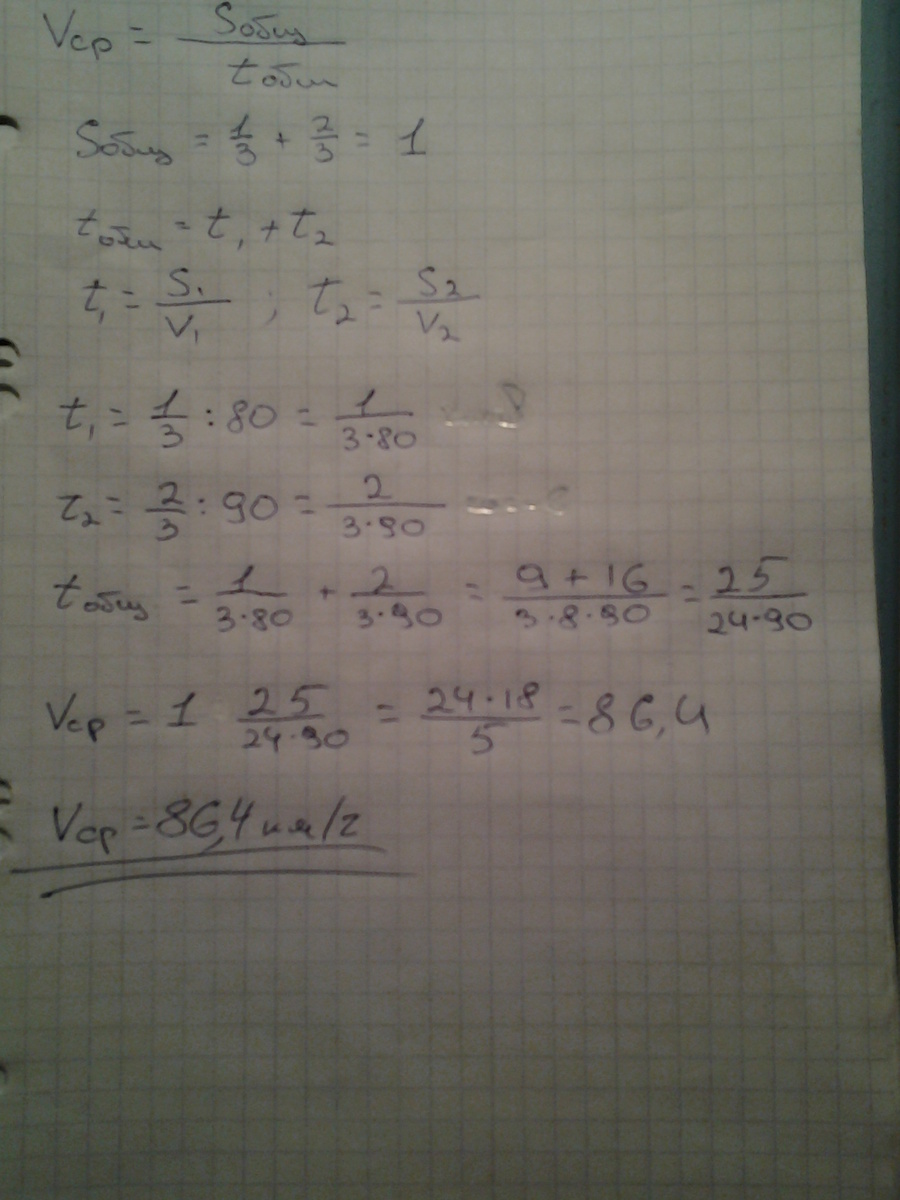 Vср = Sобщ / tобщ
Sобщ = 1/3 + 2/3 = 1
tобщ = t₁ + t₂
t₁ = S₁/V₁ ; t₂ = S₂/V₂
t₁ = 1/3 : 80 = 1/(3·80)
t₂ = 2/3 : 90 = 2/(3·90)
tобщ = 1/(3·80) + 2/(3·90) = (9+16)/(3·8·90) = 25/(24·90)
Vср = 1 25/(24·90) = (24·18)/5 = 86,4
Vср = 86,4 км/г